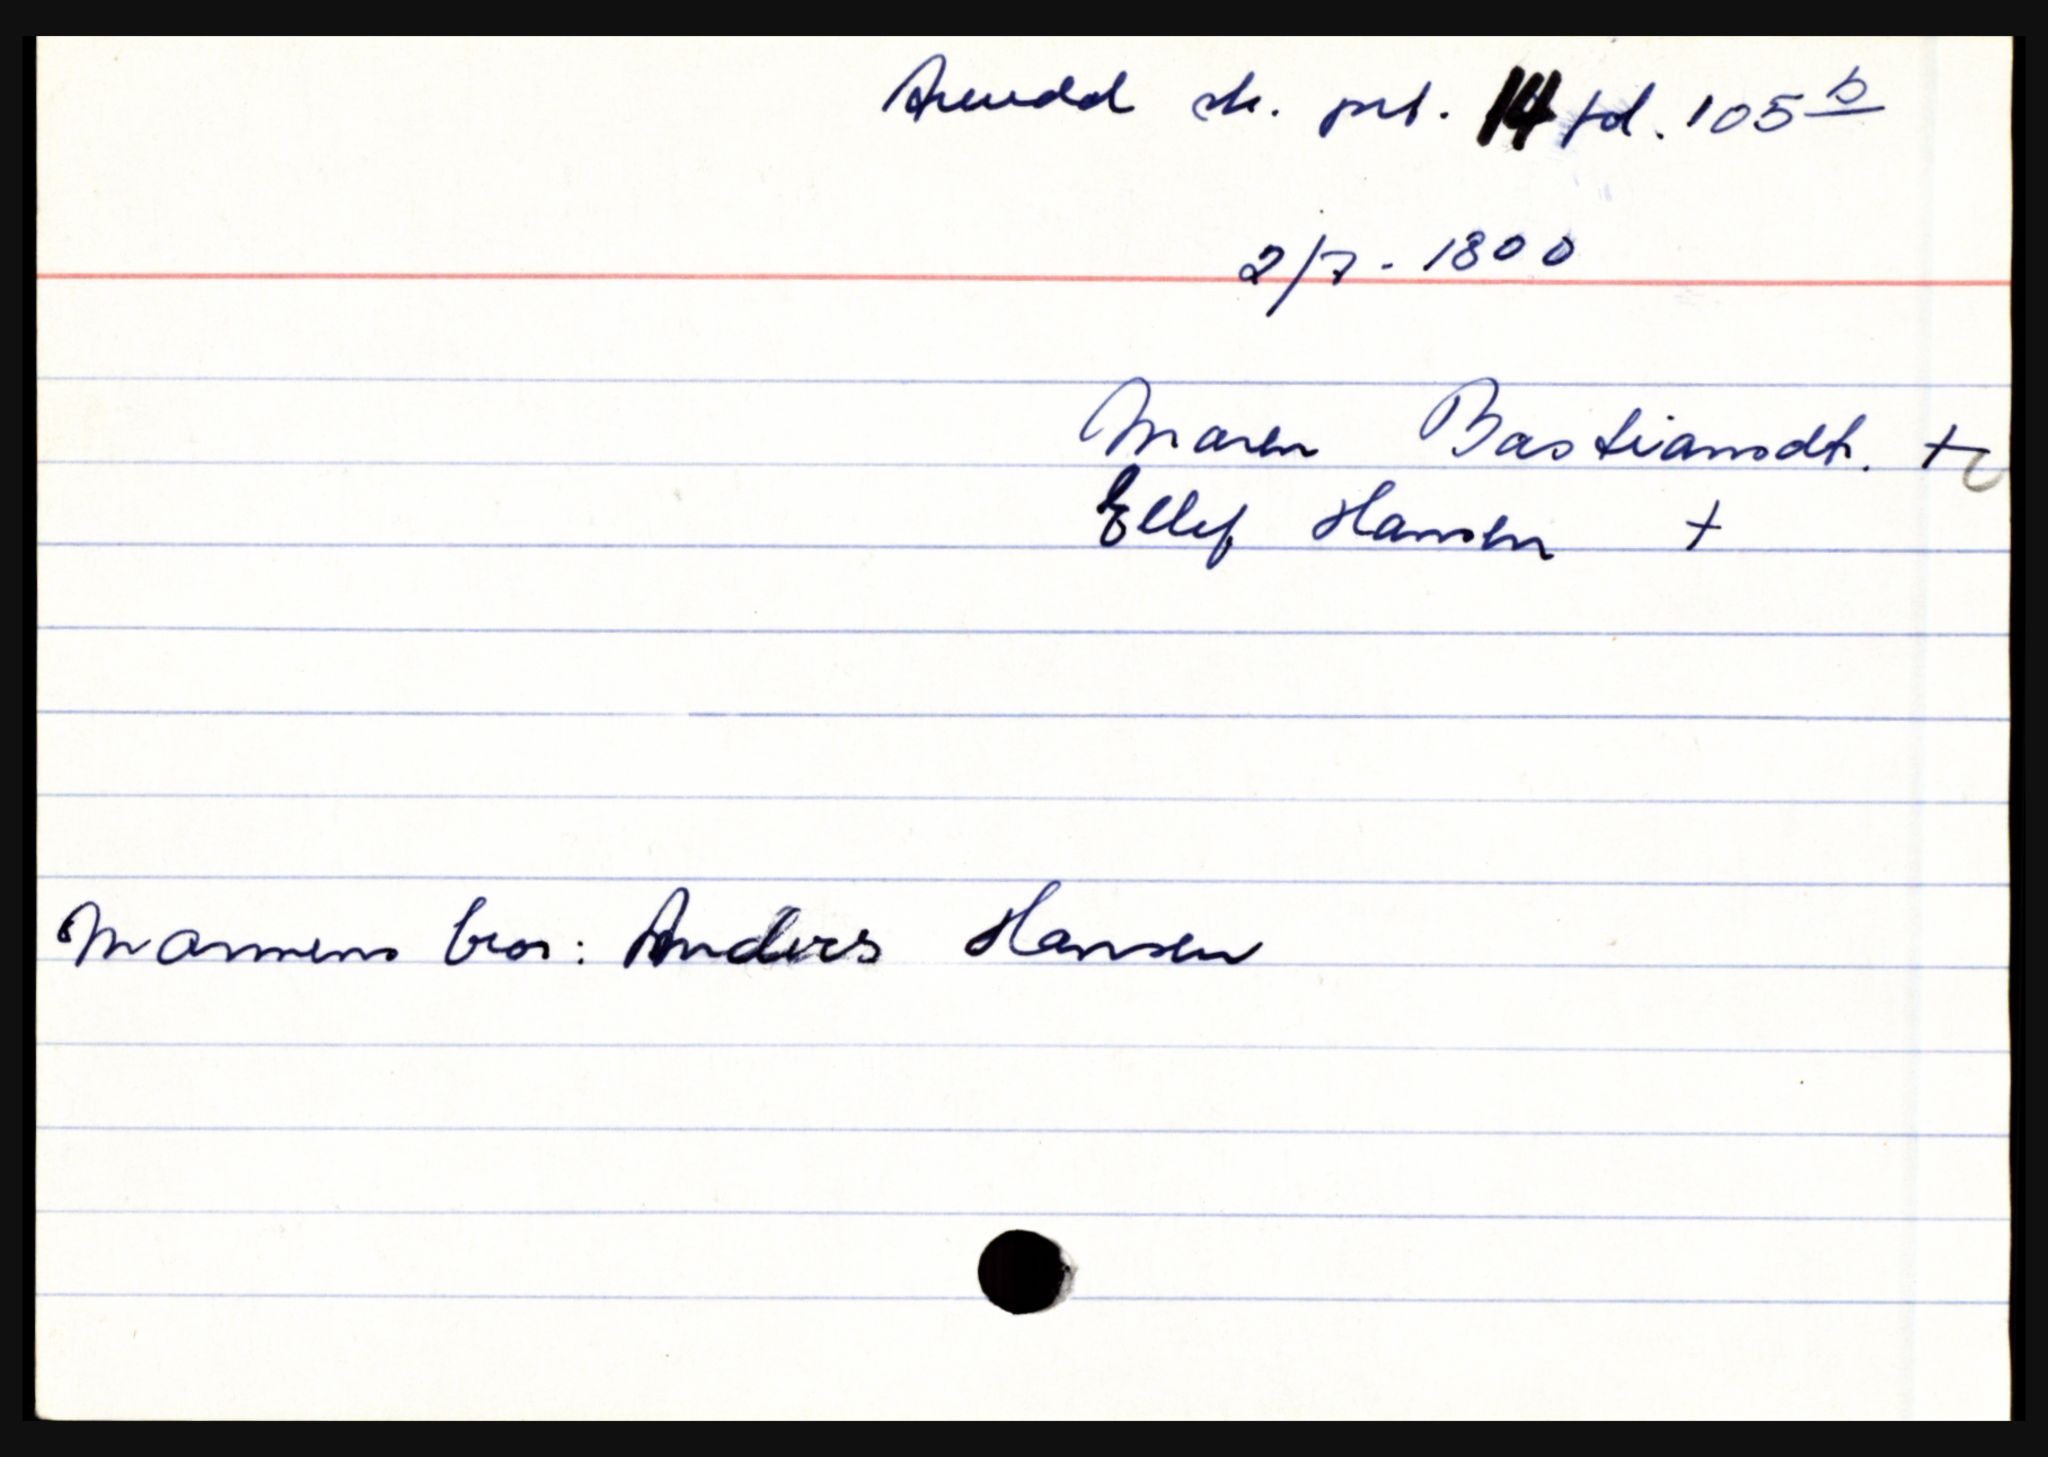 Arendal sk. prt. 14 fol. 105 b
2/7 - 1800
Maren Bastiansdt. +
Ellef Hansen +
Mannens bror: Anders Hansen